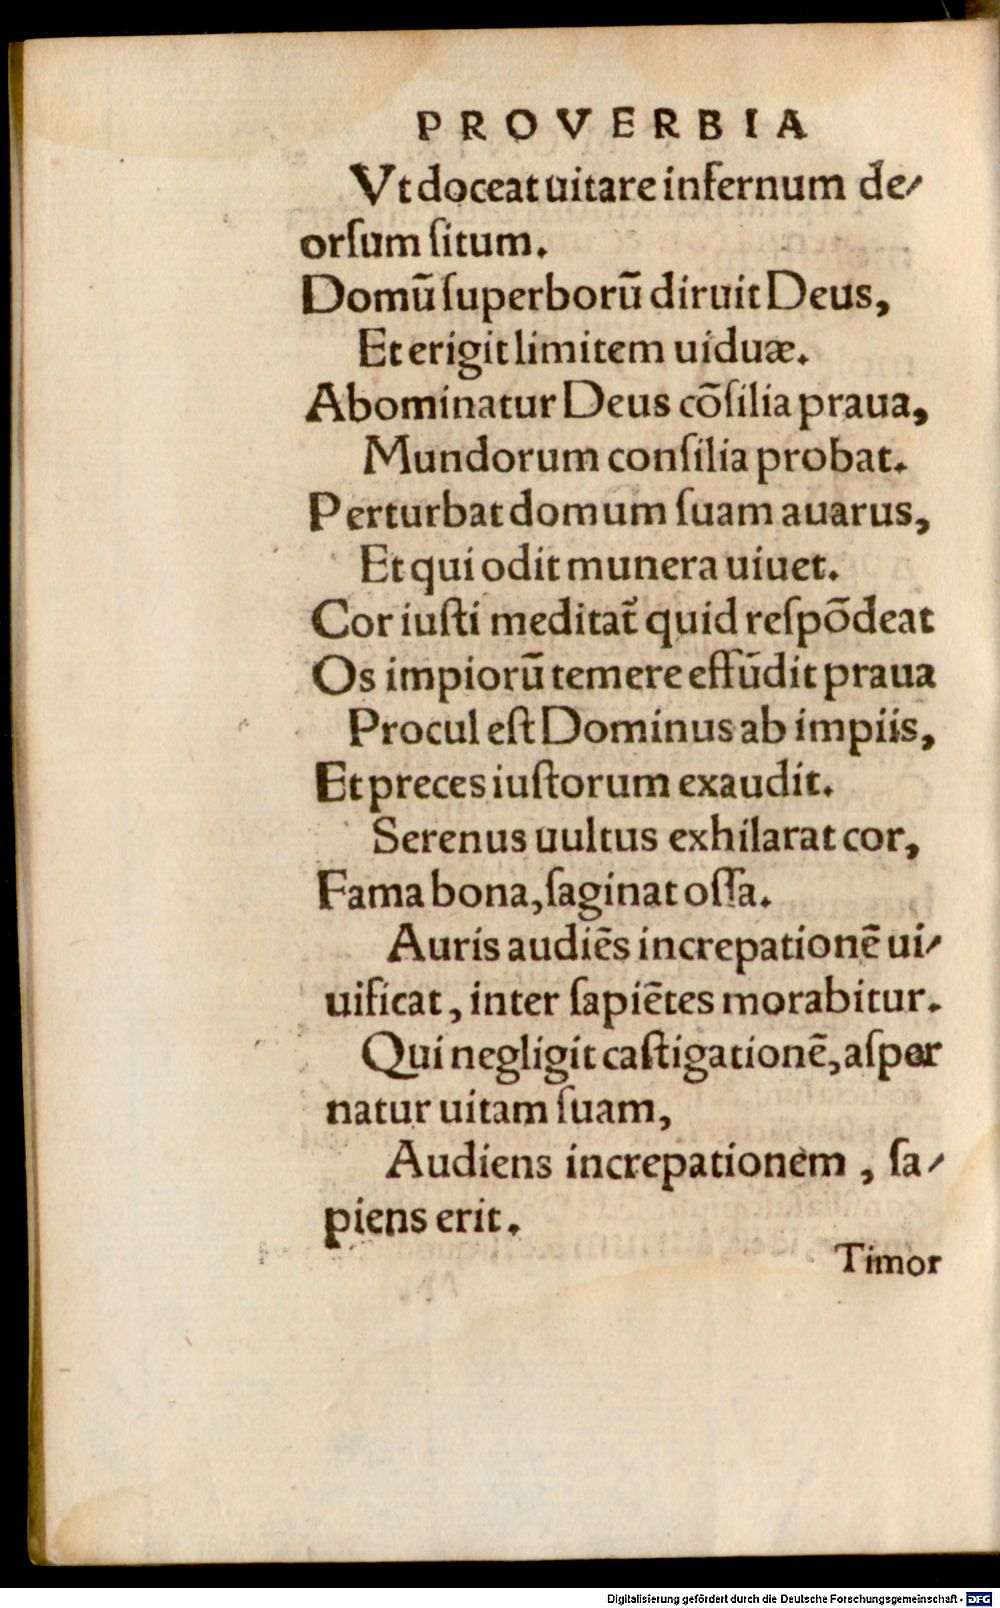 PROVERBIA
Vt doceat uitare infernum de/
orſum ſitum.
Domū ſuperborū diruit Deus,
Et erigit limitem uiduæ.
Abominatur Deus cōſilia praua,
Mundorum conſilia probat.
Perturbat domum ſuam auarus,
Et qui odit munera uiuet.
Cor iuſti meditat᷑ quid reſpōdeat
Os impiorū temere effūdit praua
Procul eſt Dominus ab impiis,
Et preces iuſtorum exaudit.
Serenus uultus exhilarat cor,
Fama bona, ſaginat oſſa.
Auris audiēs increpationē ui/
uificat, inter ſapiētes morabitur.
Qui negligit caſtigationē, aſper
natur uitam ſuam,
Audiens increpationem, ſa/
piens erit.
Timor
Digitalisierung gefördert durch die Deutsche Forschungsgemeinschaft - DFG